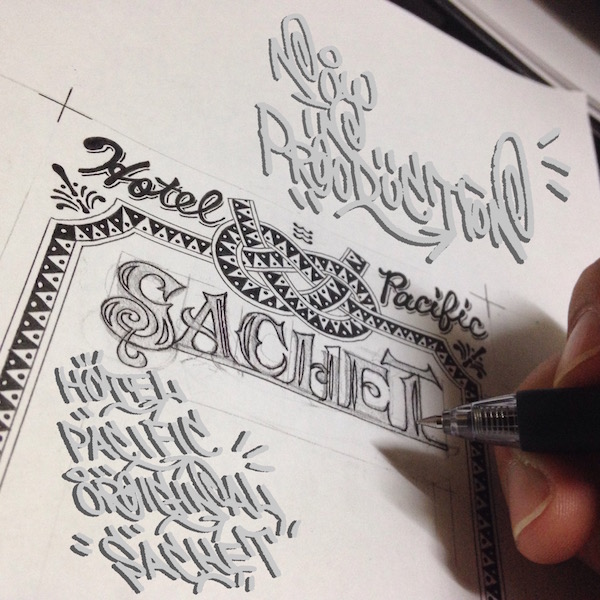 Now
iN
PRODUCTION
Hotel Pacific
SACHET
HOTEL
PACIFIC
ORIGINAL
"SACHET"